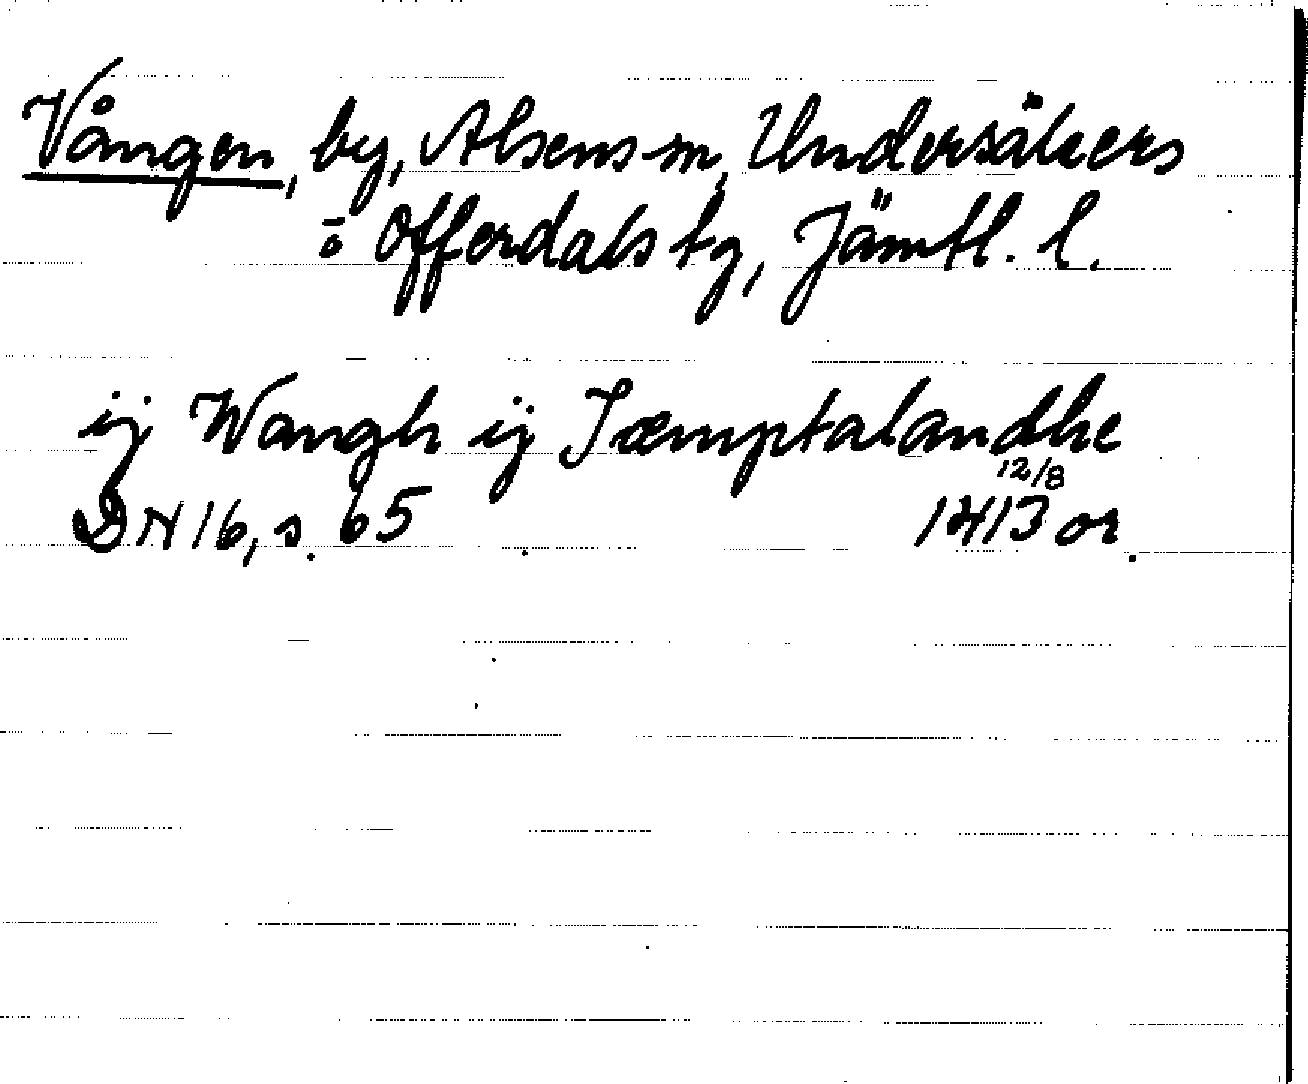 Vången, by, Alsens sn, Undersåkers
o Offerdals tg, Jämtl. l.
ij Wangh ij Iæmptalandhe
12/8
DN 16, s. 65 1413 or.